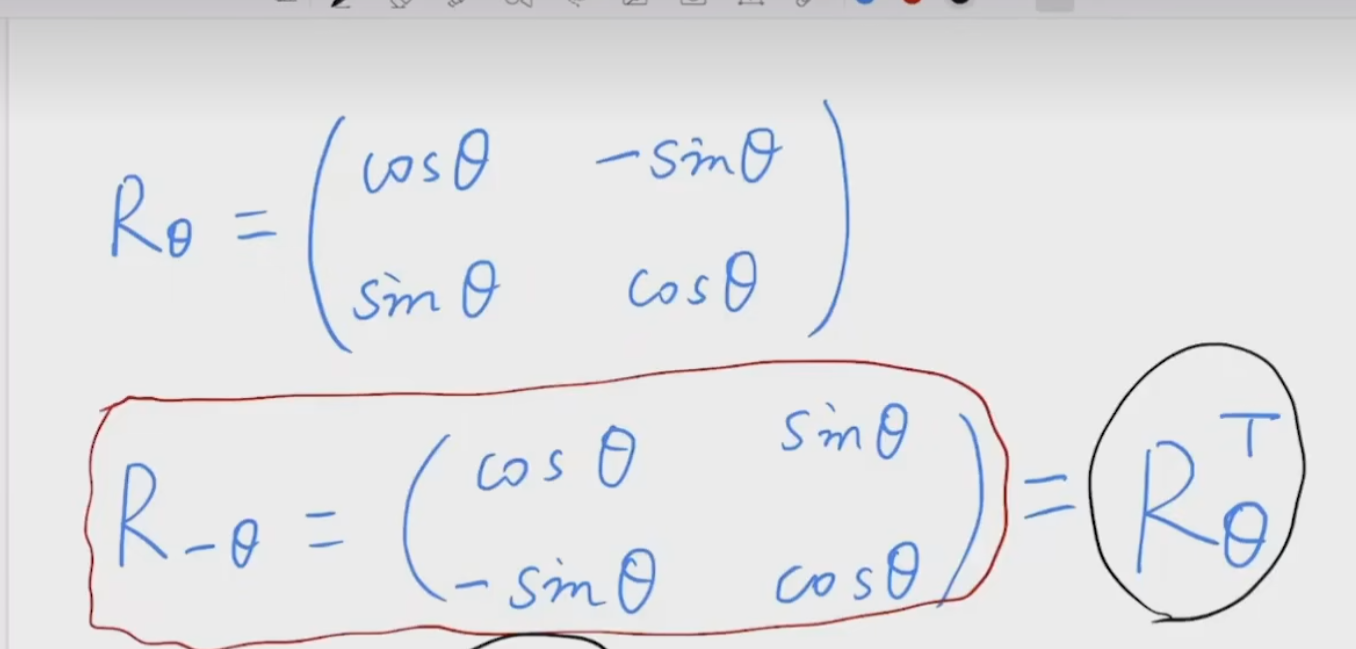 R_θ = ( cosθ  -sinθ
sinθ  cosθ )
R_{-θ} = ( cosθ  sinθ
-sinθ  cosθ ) = R_θ^T